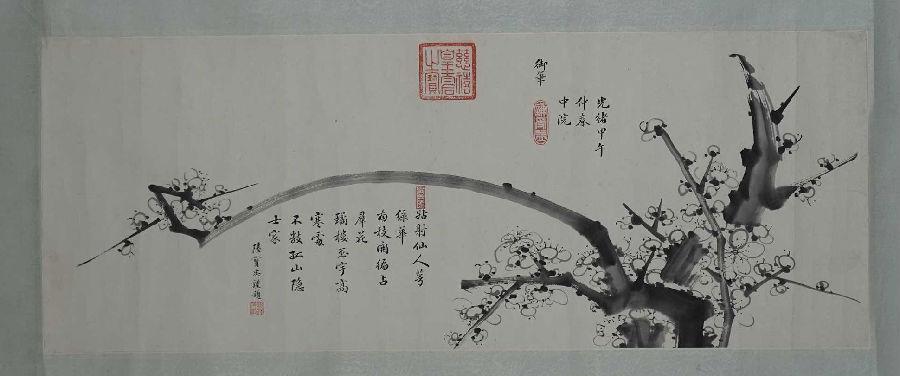 慈禧皇太后之寶
光緒甲午
仲春
中浣
御筆
姑射仙人萼
綠華
南枝開徧占
羣花
瓊樓玉宇高
寒處
不數孤山隱
士家
陸寶忠謹題